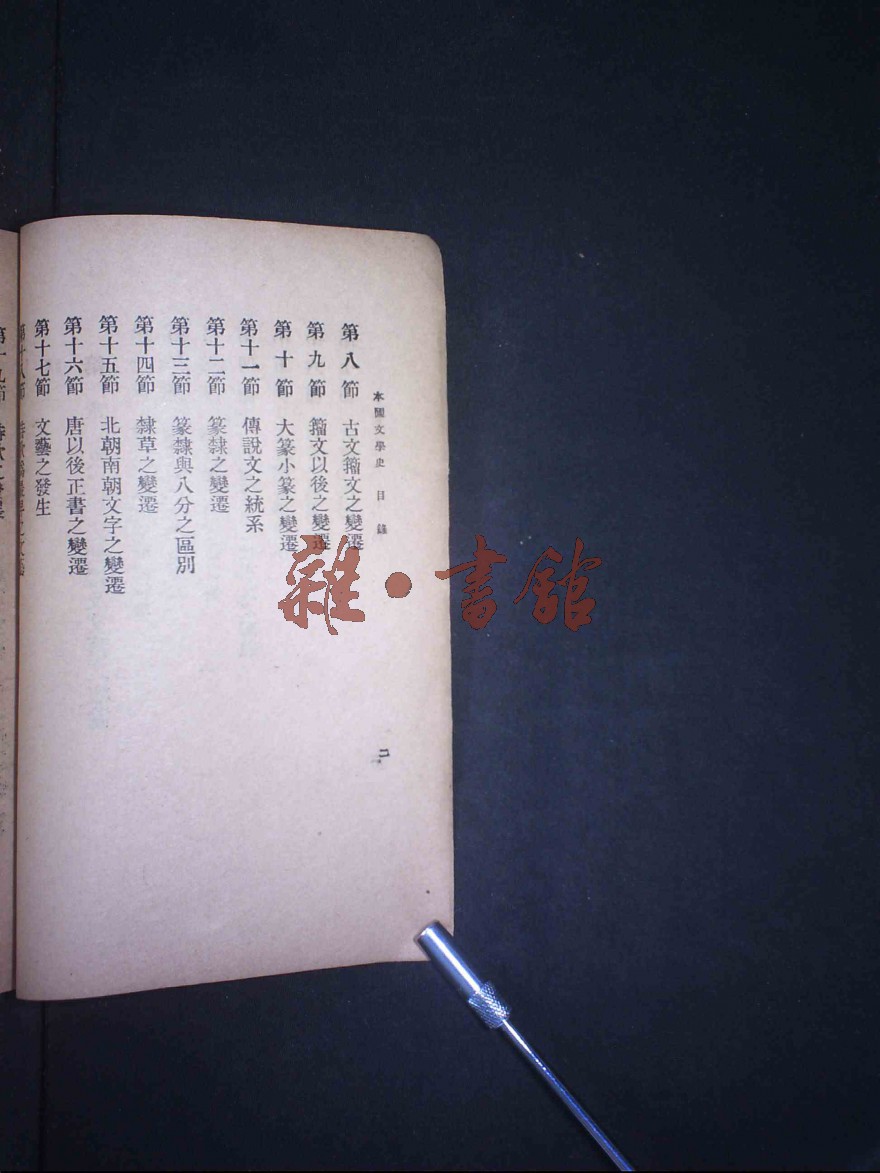 本國文學史 目錄
二
第八節 古文籀文之變遷
第九節 籀文以後之變遷
第十節 大篆小篆之變遷
第十一節 傳說文之統系
第十二節 篆隸之變遷
第十三節 篆隸與八分之區別
第十四節 隸草之變遷
第十五節 北朝南朝文字之變遷
第十六節 唐以後正書之變遷
第十七節 文藝之發生
第十八節
第十九節
雜·書館